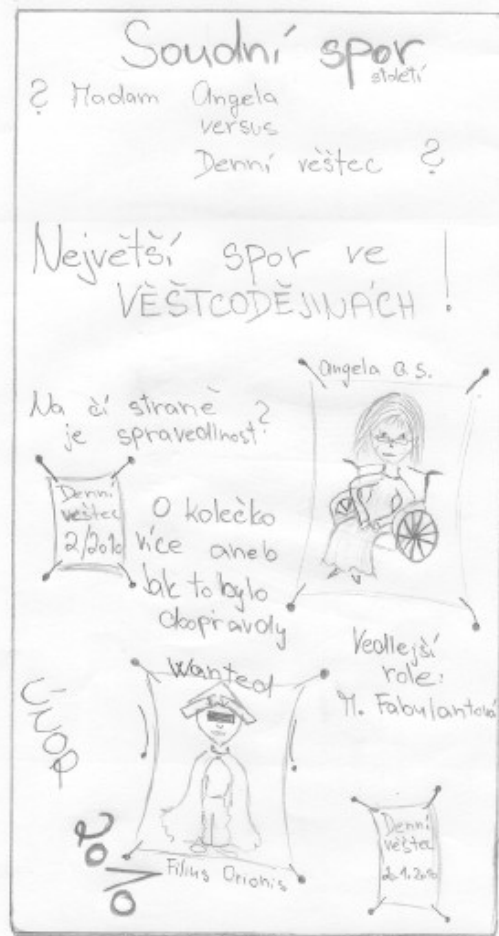 Soudní spor
století
? Madam Angela
versus
Denní věštec ?
Největší spor ve
VĚŠTCODĚJINÁCH !
Angela G. S.
Na čí straně
je spravedlnost?
Denní
věštec
2/2010
O kolečko
více aneb
Jak to bylo
doopravdy
Vedlejší
role:
M. Fabulantová
Wanted
Filius Orionis
ÚNOR
2010
Denní
věštec
20.1.2010